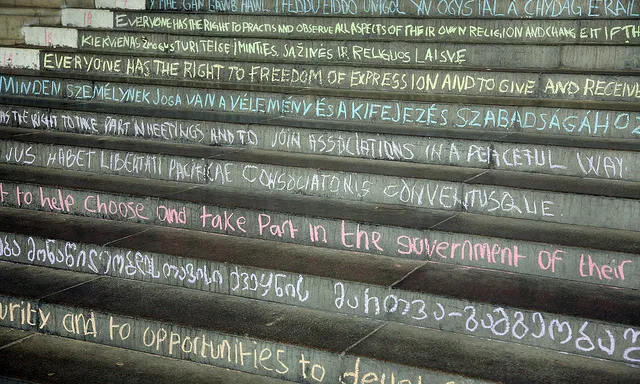 GAN BAWB HAWL I EDDO UNIGOL YN OGYSTAL A CHYDAG ERAILL
18 EVERYONE HAS THE RIGHT TO PRACTIS AND OBSERVE ALL ASPECTS OF THEIR OWN RELIGION AND CHANGE IT IF TH
18 KIEKVIENAS ŽMOGUS TURI TEISĘ Į MINTIES, SĄŽINĖS IR RELIGIJOS LAISVĘ
EVERYONE HAS THE RIGHT TO FREEDOM OF EXPRESSION AND TO GIVE AND RECEIVE
MINDEN SZEMÉLYNEK JOGA VAN A VÉLEMÉNY ÉS A KIFEJEZÉS SZABADSÁGÁHOZ
HAS THE RIGHT TO TAKE PART IN MEETINGS AND TO JOIN ASSOCIATIONS IN A PEACEFUL WAY
JUS HABET LIBERTATI PACIFICAE CONSOCIATIONIS CONVENTUSQUE.
t to help choose and take part in the government of their
მონაწილეობდეს თავისი ქვეყნის მართვა-გამგეობაშ
urity and to opportunities to